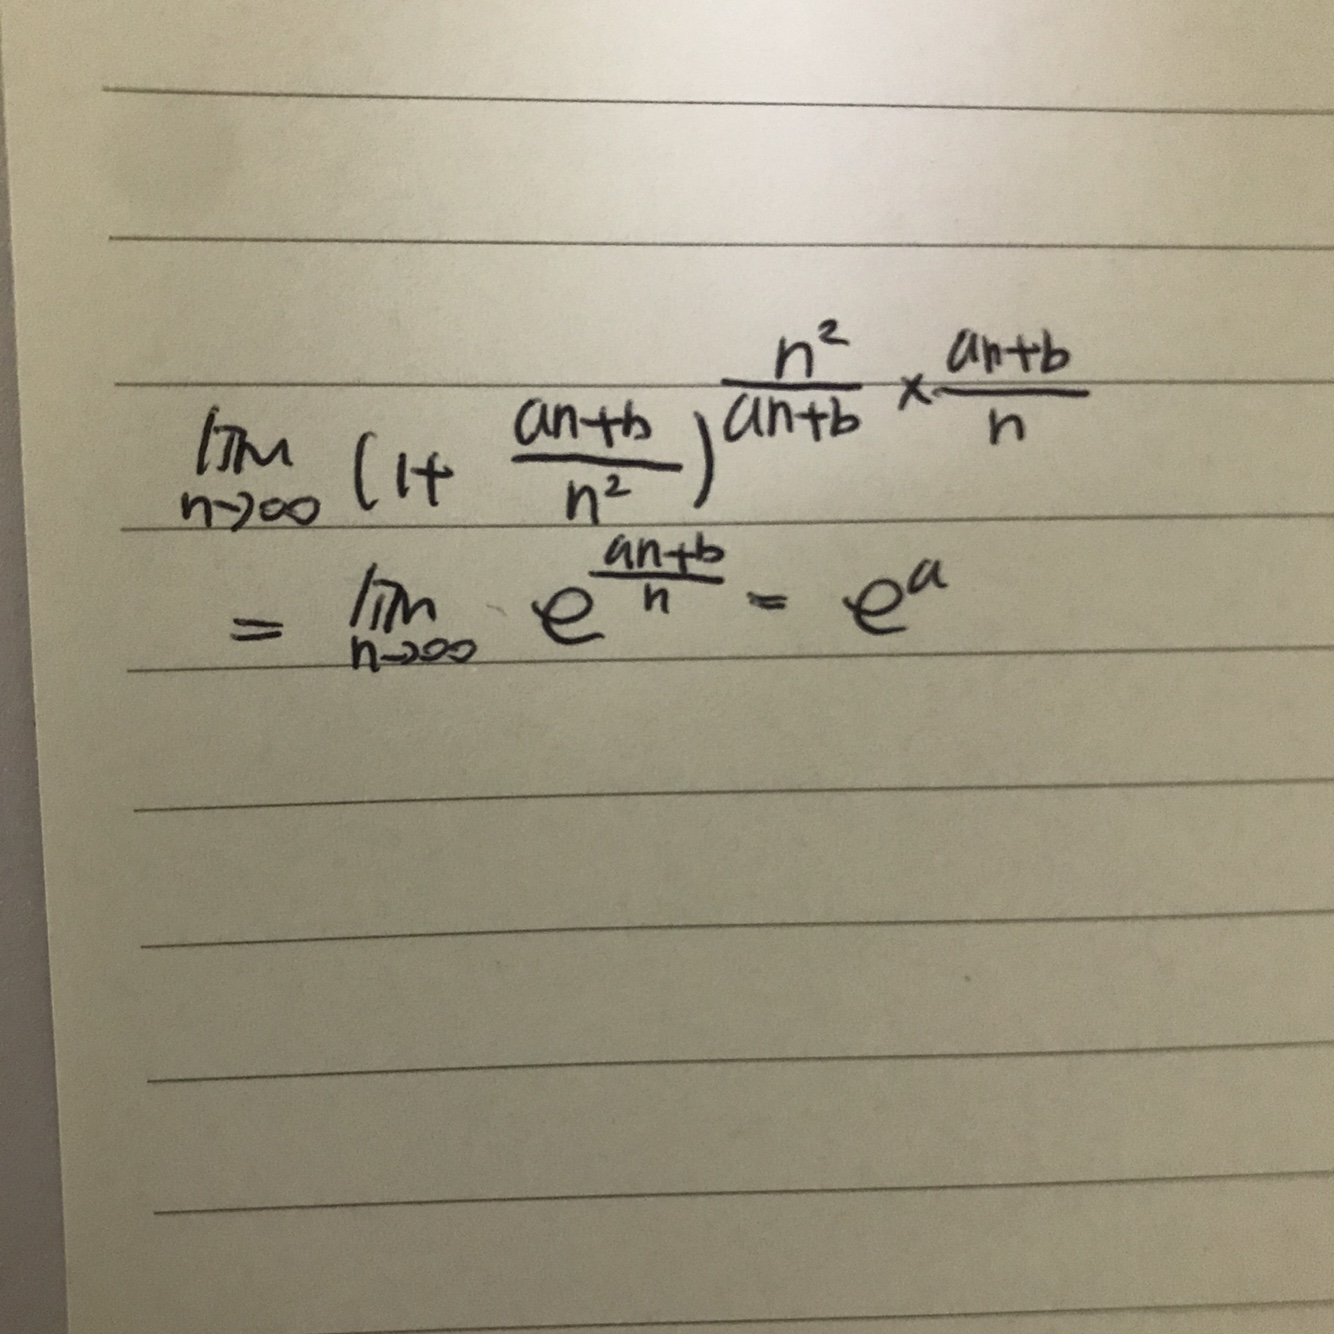 lim n→∞ (1+ (an+b)/n²)^(n²/(an+b) × (an+b)/n)
= lim n→∞ e^((an+b)/n) = e^a